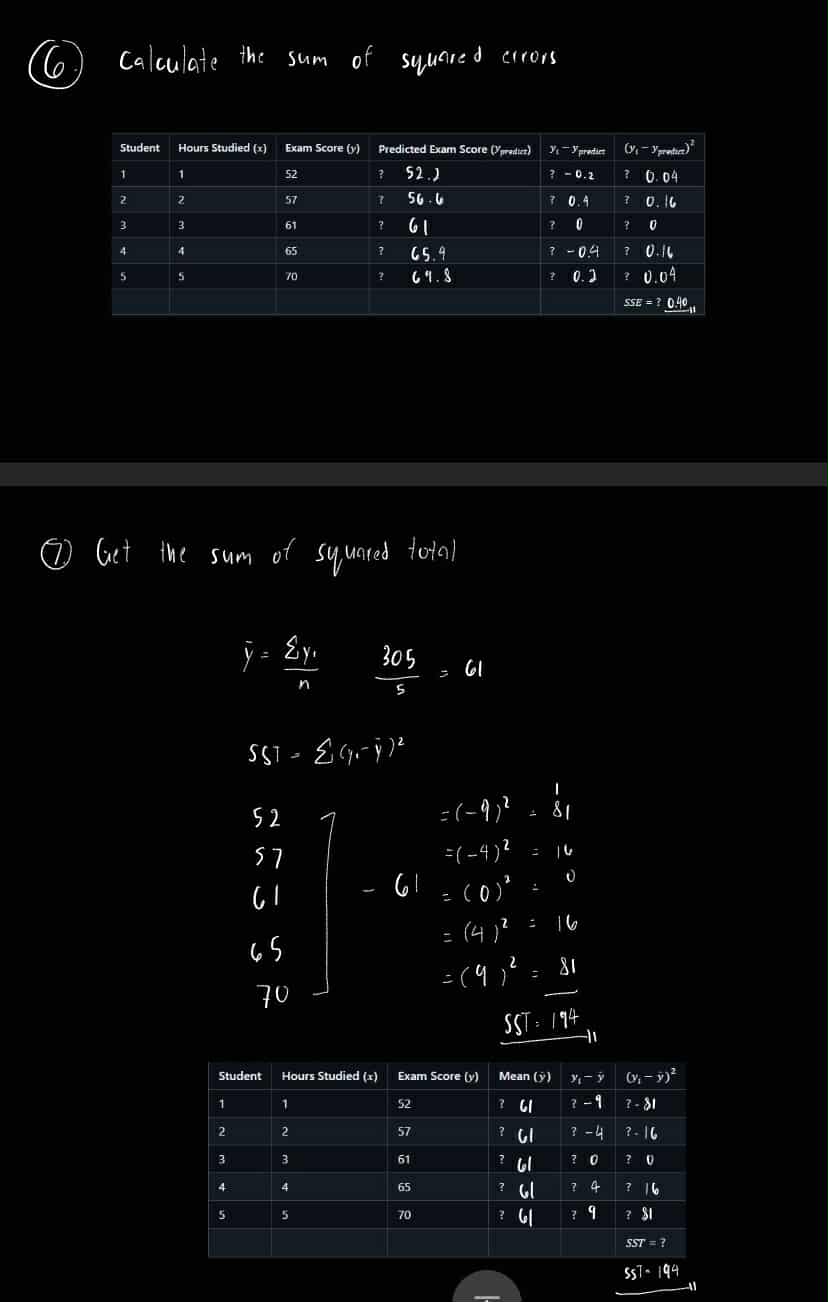 6. Calculate the sum of squared errors
Student Hours Studied (x) Exam Score (y) Predicted Exam Score (y_predict) y_i − y_predict (y_i − y_predict)²
1 1 52 ? 52.2 ? -0.2 ? 0.04
2 2 57 ? 56.6 ? 0.4 ? 0.16
3 3 61 ? 61 ? 0 ? 0
4 4 65 ? 65.4 ? -0.4 ? 0.16
5 5 70 ? 69.8 ? 0.2 ? 0.04
SSE = ? 0.40
7. Get the sum of squared total
ȳ = Σy_i / n 305 / 5 = 61
SST = Σ(y_i - ȳ)²
1
52 = (-9)² = 81
57 = (-4)² = 16
61 - 61 = (0)² = 0
65 = (4)² = 16
70 = (9)² = 81
SST = 194
Student Hours Studied (x) Exam Score (y) Mean (ȳ) y_i − ȳ (y_i − ȳ)²
1 1 52 ? 61 ? -9 ? - 81
2 2 57 ? 61 ? -4 ? - 16
3 3 61 ? 61 ? 0 ? 0
4 4 65 ? 61 ? 4 ? 16
5 5 70 ? 61 ? 9 ? 81
SST = ?
SST = 194